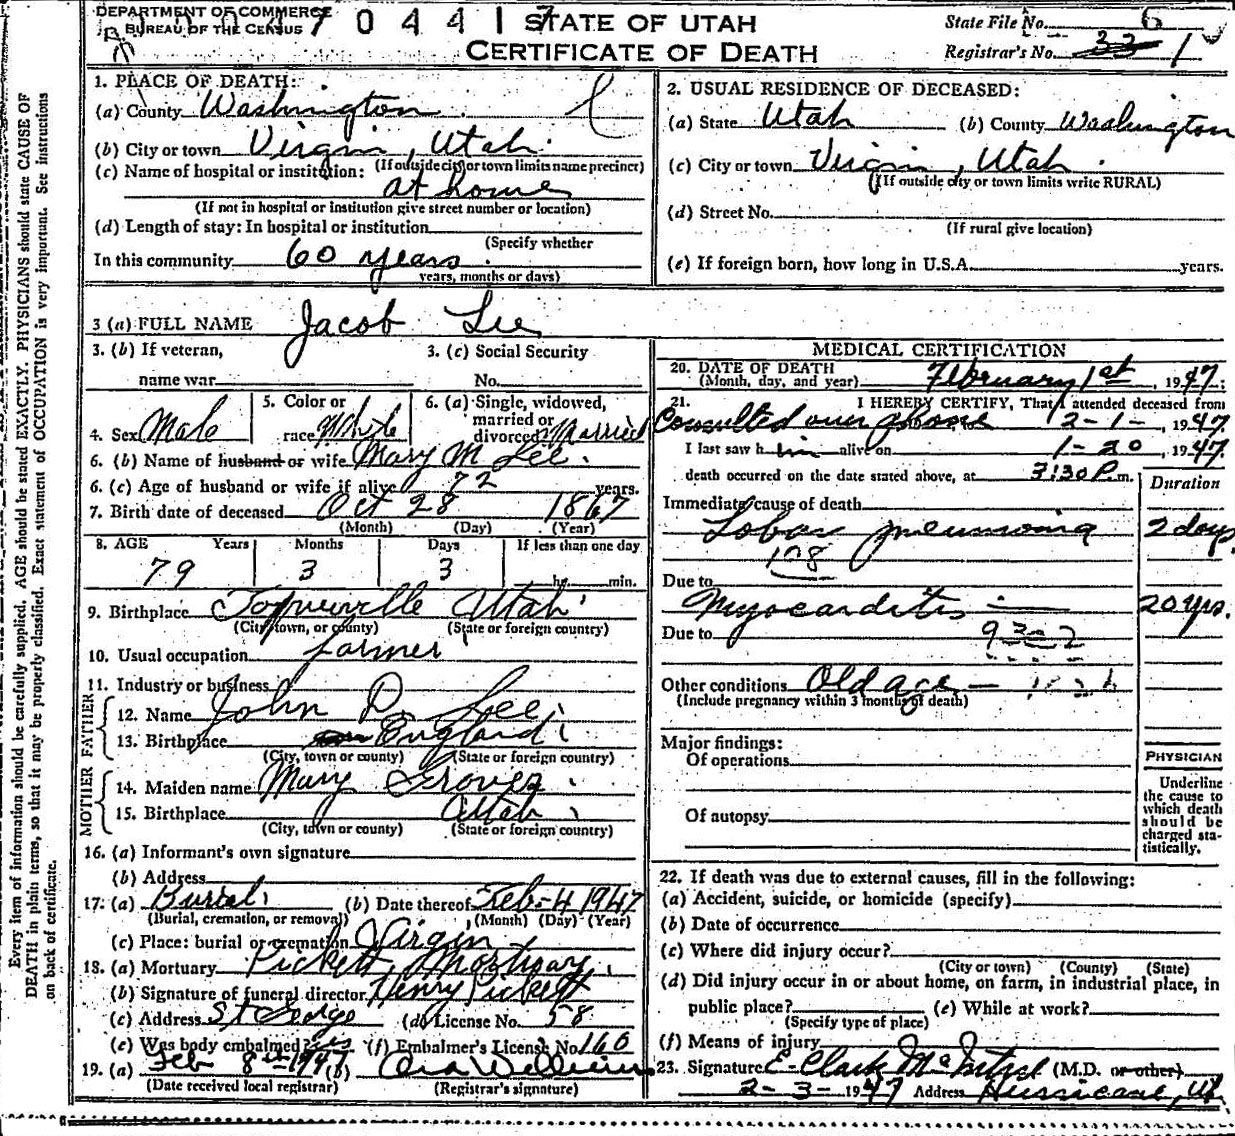 DEPARTMENT OF COMMERCE
BUREAU OF THE CENSUS
7 0 4 4 1 7
STATE OF UTAH
CERTIFICATE OF DEATH
State File No. 6
Registrar's No. 33 1
1. PLACE OF DEATH:
(a) County Washington
(b) City or town Virgin, Utah.
(If outside city or town limits name precinct)
(c) Name of hospital or institution:
at home
(If not in hospital or institution give street number or location)
(d) Length of stay: In hospital or institution
(Specify whether
In this community 60 years
years, months or days)
2. USUAL RESIDENCE OF DECEASED:
(a) State Utah (b) County Washington
(c) City or town Virgin, Utah.
(If outside city or town limits write RURAL)
(d) Street No.
(If rural give location)
(e) If foreign born, how long in U.S.A. years.
3 (a) FULL NAME Jacob Lee
3. (b) If veteran, 3. (c) Social Security
name war No.
4. Sex Male
5. Color or
race White
6. (a) Single, widowed,
married or
divorced Married
6. (b) Name of husband or wife Mary M Lee.
6. (c) Age of husband or wife if alive 72 years.
7. Birth date of deceased Oct 28 1867
(Month) (Day) (Year)
8. AGE Years Months Days If less than one day
79 3 3 hr. min.
9. Birthplace Toquerville Utah
(City, town, or county) (State or foreign country)
10. Usual occupation farmer
11. Industry or business
FATHER
12. Name John D. Lee
13. Birthplace England
(City, town or county) (State or foreign country)
MOTHER
14. Maiden name Mary Groves
15. Birthplace Utah
(City, town or county) (State or foreign country)
16. (a) Informant's own signature
(b) Address
17. (a) Burial (b) Date thereof Feb-4 1947
(Burial, cremation, or removal) (Month) (Day) (Year)
(c) Place: burial or cremation Virgin
18. (a) Mortuary Pickett Mortuary
(b) Signature of funeral director Henry Pickett
(c) Address St George (d) License No. 58
(e) Was body embalmed? yes (f) Embalmer's License No. 160
19. (a) Feb 8th-1947 (b)
(Date received local registrar) (Registrar's signature)
MEDICAL CERTIFICATION
20. DATE OF DEATH
(Month, day, and year) February 1st, 1947;
21. I HEREBY CERTIFY, That I attended deceased from
Consulted over phone 2-1-, 1947
I last saw him alive on 1-20, 1947
death occurred on the date stated above, at 3:30 P.m.
Duration
Immediate cause of death
Lobar pneumonia 2 days
108
Due to
Myocarditis 20 yrs.
Due to
Other conditions Old age
(Include pregnancy within 3 months of death)
Major findings:
Of operations
Of autopsy
PHYSICIAN
Underline
the cause to
which death
should be
charged sta-
tistically.
22. If death was due to external causes, fill in the following:
(a) Accident, suicide, or homicide (specify)
(b) Date of occurrence
(c) Where did injury occur?
(City or town) (County) (State)
(d) Did injury occur in or about home, on farm, in industrial place, in
public place? (e) While at work?
(Specify type of place)
(f) Means of injury
23. Signature E. Clark (M.D. or other)
2-3-1947 Address Hurricane, Ut
Every item of information should be carefully supplied. AGE should be stated EXACTLY. PHYSICIANS should state CAUSE OF
DEATH in plain terms, so that it may be properly classified. Exact statement of OCCUPATION is very important. See Instructions
on back of certificate.